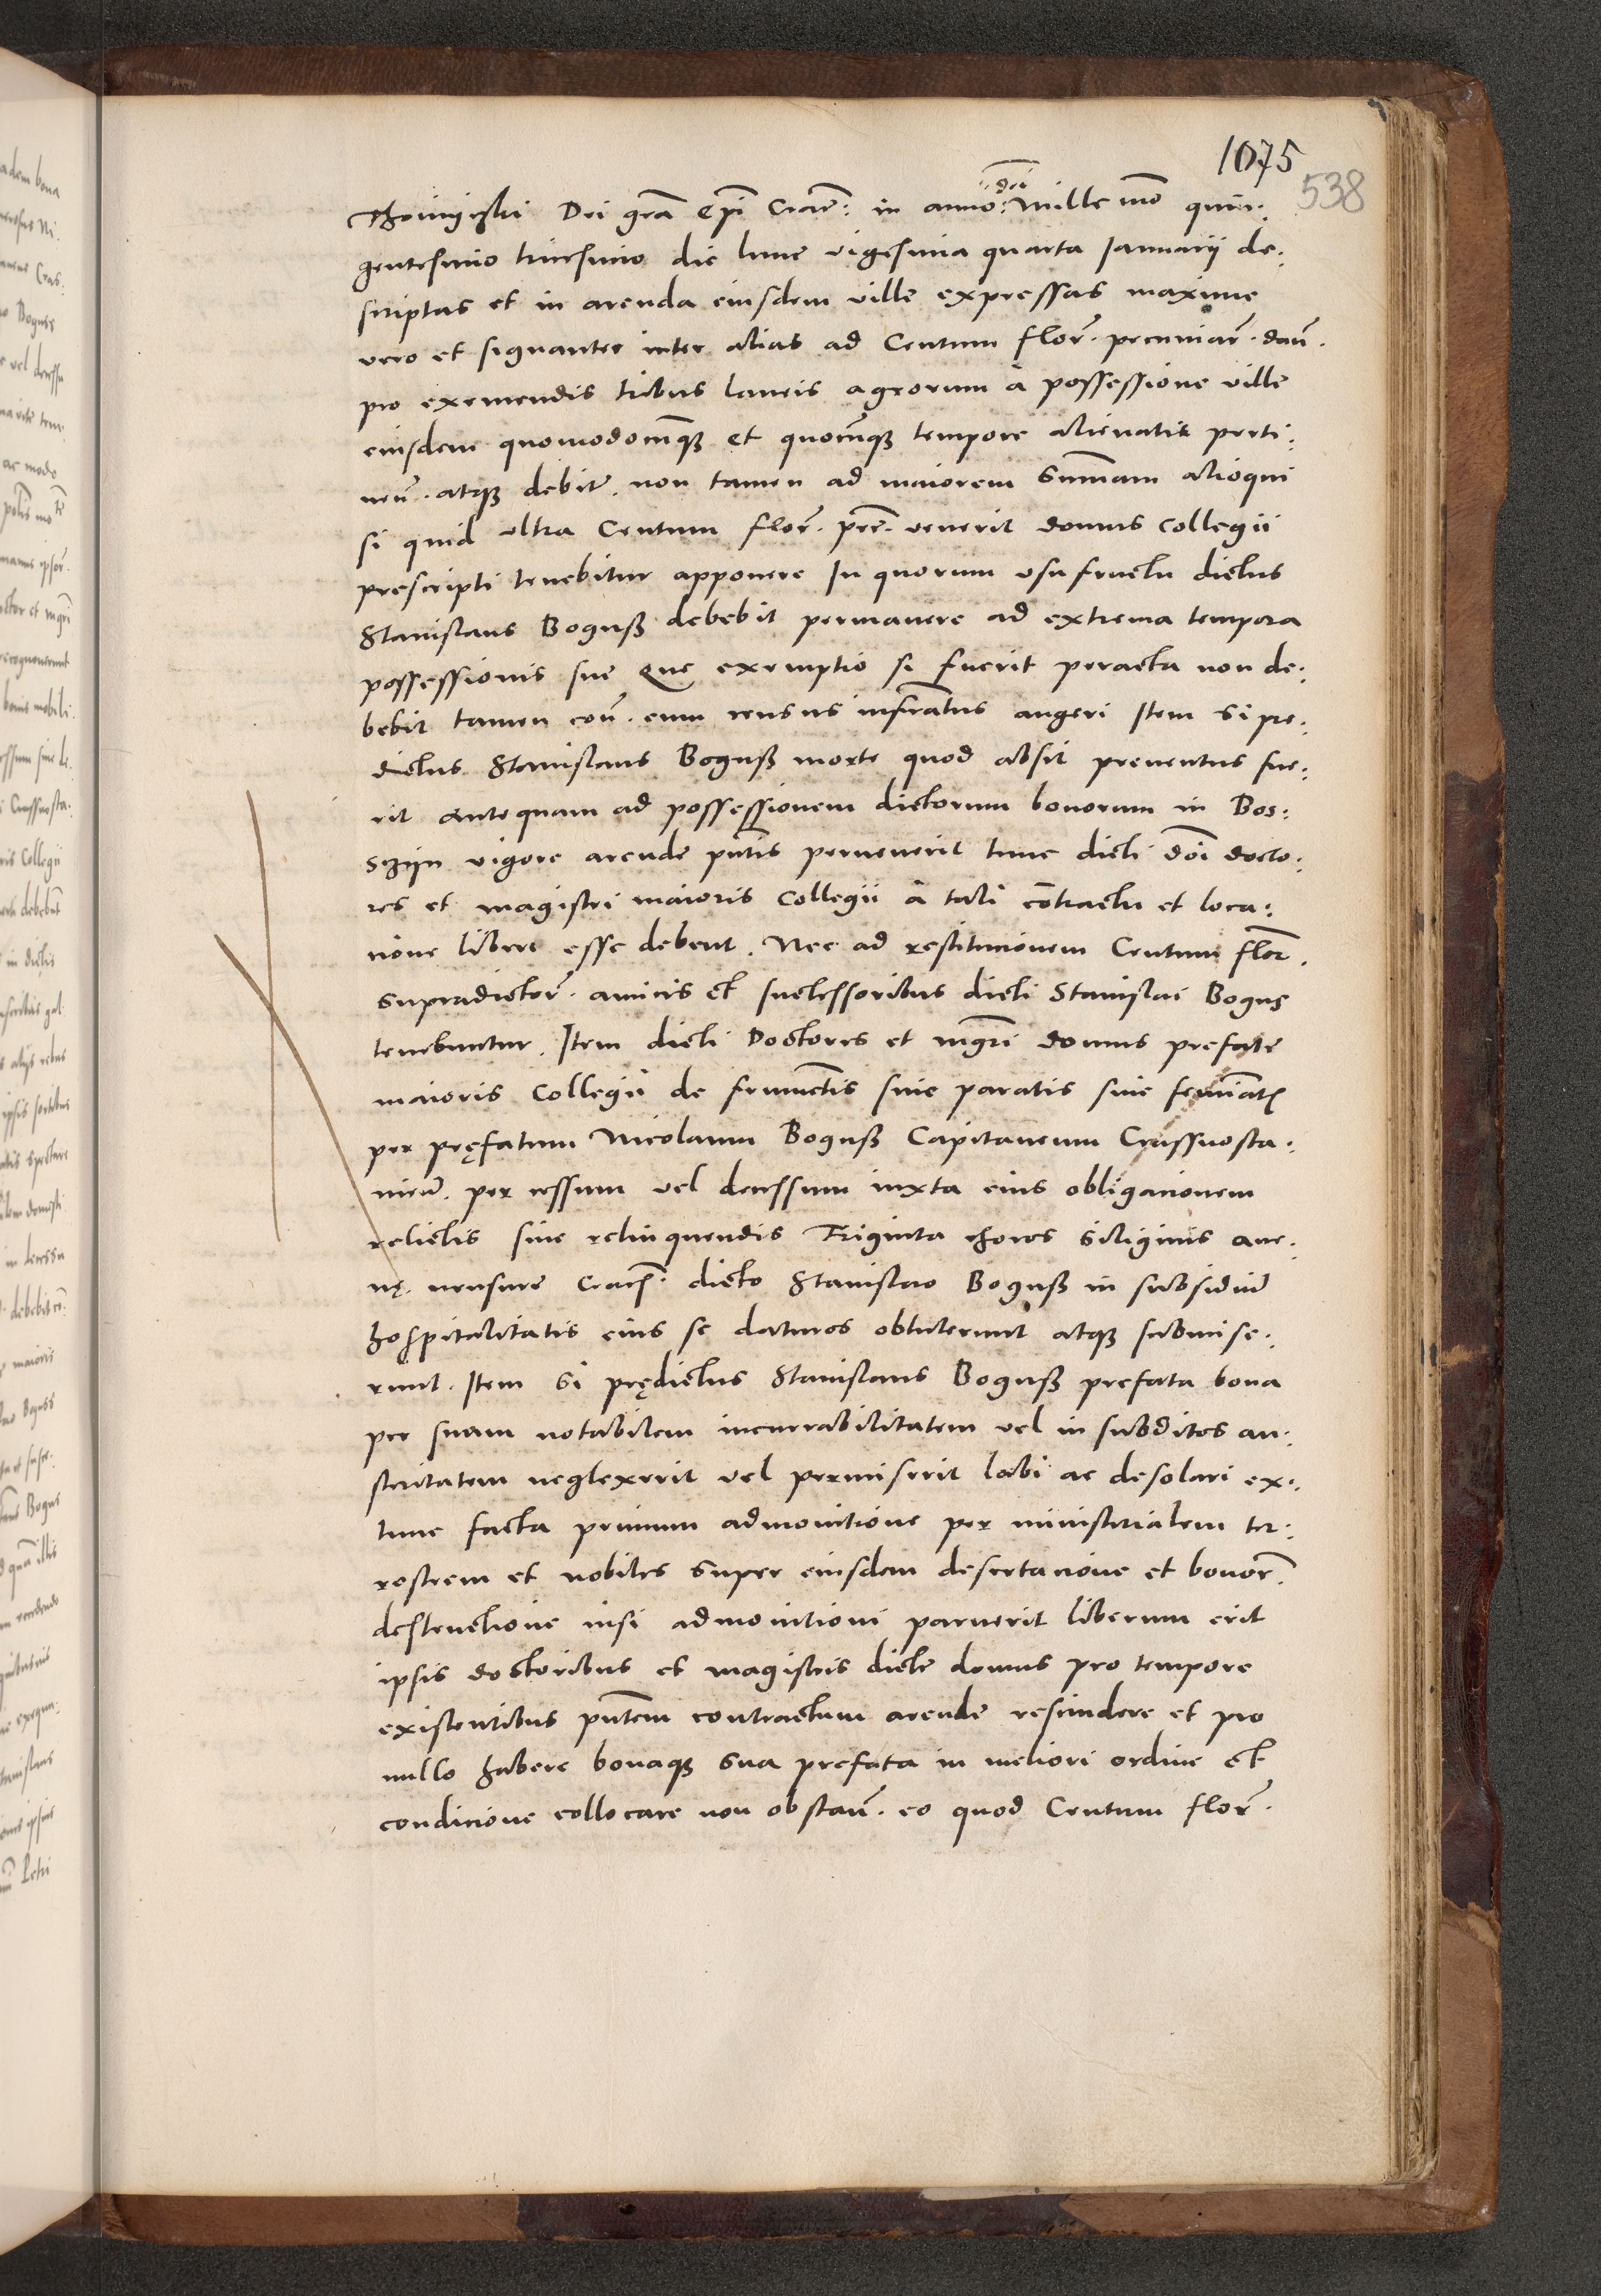 1075
538
dñi
Thomiczki Dei gr̃a Ep̃i Crac̃: in anno: Millesimo quin:
gentesimo tricesimo die lune vigesima quarta Januarij de:
scriptas et in arenda eiusdem ville expressas maxime
vero et signanter inter alias ad Centum flor̃. pecuniar̃. dañ.
pro exemendis tribus laneis agrorum à possessione ville
eiusdem quomodocũqꝫ et quocũqꝫ tempore alienatis perti:
neñ. atqꝫ debit̃. non tamen ad maiorem Sum̃am alioqui
si quid vltra Centum flor̃. prẽ. venerit domus Collegii
prescripti tenebitur apponere In quorum vsufructu dictus
Stanislaus Boguß debebit permanere ad extrema tempora
possessionis sue Que exemptio si fuerit peracta non de:
bebit tamen coñ. eum census infrãtus augeri Item Si pre:
dictus Stanislaus Boguß morte quod absit preuentus fue:
rit antequam ad possessionem dictorum bonorum in Bos:
szijn vigore arende pñtis peruenerit tunc dicti dñi docto:
res et magistri maioris Collegii à tali cõtractu et loca:
cione liberi esse debent. Nec ad restitucionem Centum flor̃.
supradictor̃. amicis et successoribus dicti Stanislai Bogus
tenebuntur. Item dicti Doctores et mgr̃i domus prefate
maioris Collegii de frumẽtis siue paratis siue semĩatis
per pręfatum Nicolaum Boguß Capitaneum Crassnosta:
vieñ. per cessum vel decessum iuxta eius obligacionem
relictis siue relinquendis Triginta choros siliginis aue:
nę. mensure Crac̃. dicto Stanislao Boguß in subsidiũ
hospitalitatis eius se daturos obtulerunt atqꝫ submise:
runt. Item Si prędictus Stanislaus Boguß prefata bona
per suam notabilem incurrabilitatem vel in subditos au:
steritatem neglexerit vel permiserit labi ac desolari ex:
tunc facta primum admonitione per ministerialem ter:
restrem et nobiles super eiusdem desertacione et bonor̃.
destructione nisi admonitioni paruerit liberum erit
ipsis doctoribus et magistris dicte domus pro tempore
existentibus pñtem contractum arende rescindere et pro
nullo habere bonaqꝫ sua prefata in meliori ordine et
condicione collocare non obstañ. eo quod Centum flor̃.